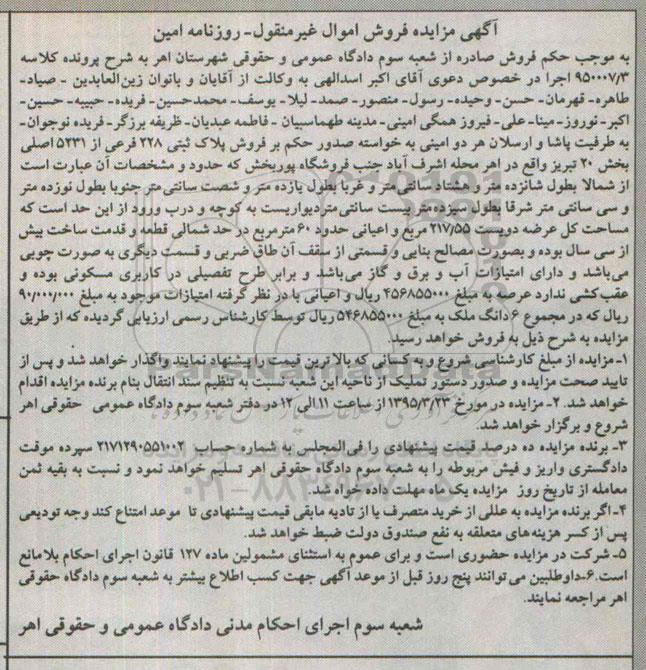 آگهی مزایده فروش اموال غیرمنقول- روزنامه امین
به موجب حکم فروش صادره از شعبه سوم دادگاه عمومی و حقوقی شهرستان اهر به شرح پرونده کلاسه
۹۵۰۰۰۷/۳ اجرا در خصوص دعوی آقای اکبر اسدالهی به وکالت از آقایان و بانوان زین‌العابدین - صیاد-
طاهره- قهرمان- حسن- وحیده- رسول- منصور- صمد- لیلا- یوسف- محمدحسین- فریده- حبیبه- حسین-
اکبر- نوروز- مینا- علی- فیروز همگی امینی- مدینه طهماسبیان - فاطمه عبدیان- ظریفه برزگر- فریده نوجوان-
به طرفیت پاشا و ارسلان هر دو امینی به خواسته صدور حکم بر فروش پلاک ثبتی ۲۲۸ فرعی از ۵۲۳۱ اصلی
بخش ۲۰ تبریز واقع در اهر محله اشرف آباد جنب فروشگاه پوربخش که حدود و مشخصات آن عبارت است
از شمالا بطول شانزده متر و هشتاد سانتی‌متر و غربا بطول یازده متر و شصت سانتی‌متر جنوبا بطول نوزده متر
و سی سانتی متر شرقا بطول سیزده‌متر بیست سانتی‌متر دیواریست به کوچه و درب ورود از این حد است که
مساحت کل عرصه دویست ۲۱۷/۵۵ مربع و اعیانی حدود ۶۰ مترمربع در حد شمالی قطعه و قدمت ساخت بیش
از سی سال بوده و بصورت مصالح بنایی و قسمتی از سقف آن طاق ضربی و قسمت دیگری به صورت چوبی
می‌باشد و دارای امتیازات آب و برق و گاز می‌باشد و برابر طرح تفصیلی در کاربری مسکونی بوده و
عقب‌کشی ندارد عرصه به مبلغ ۴۵۶۸۵۵۰۰۰ ریال و اعیانی با در نظر گرفته امتیازات موجود به مبلغ ۹۰/۰۰۰/۰۰۰
ریال که در مجموع ۶ دانگ ملک به مبلغ ۵۴۶۸۵۵۰۰۰ ریال توسط کارشناس رسمی ارزیابی گردیده که از طریق
مزایده به شرح ذیل به فروش خواهد رسید.
۱-مزایده از مبلغ کارشناسی شروع و به کسانی که بالاترین قیمت را پیشنهاد نمایند واگذار خواهد شد و پس از
تایید صحت مزایده و صدور دستور تملیک از ناحیه این شعبه نسبت به تنظیم سند انتقال بنام برنده مزایده اقدام
خواهد شد. ۲-مزایده در مورخ ۱۳۹۵/۳/۲۳ از ساعت ۱۱ الی ۱۲ در دفتر شعبه سوم دادگاه عمومی حقوقی اهر
شروع و برگزار خواهد شد.
۳- برنده مزایده ده درصد قیمت پیشنهادی را فی‌المجلس به شماره حساب ۲۱۷۱۲۹۰۵۵۱۰۰۲ سپرده موقت
دادگستری واریز و فیش مربوطه را به شعبه سوم دادگاه حقوقی اهر تسلیم خواهد نمود و نسبت به بقیه ثمن
معامله از تاریخ روز مزایده یک ماه مهلت داده خواهد شد.
۴-اگر برنده مزایده به عللی از خرید متصرف یا از تادیه مابقی قیمت پیشنهادی تا موعد امتناع کند وجه تودیعی
پس از کسر هزینه‌های متعلقه به نفع صندوق دولت ضبط خواهد شد.
۵- شرکت در مزایده حضوری است و برای عموم به استثنای مشمولین ماده ۱۲۷ قانون اجرای احکام بلامانع
است.۶-داوطلبین می‌توانند پنج روز قبل از موعد آگهی جهت کسب اطلاع بیشتر به شعبه سوم دادگاه حقوقی
اهر مراجعه نمایند.
شعبه سوم اجرای احکام مدنی دادگاه عمومی و حقوقی اهر
ParsNamadData
۰۲۱-۸۸۳۴۹۶۷۰-۵